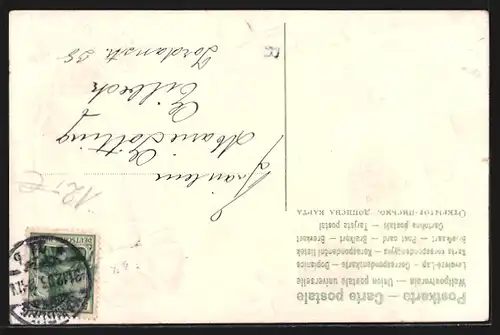 Postkarte — Carte postale
Weltpostverein — Union postale universelle
Levelező-Lap — Correspondenzkarte — Dopisnica
Karta korespondencyjna — Korespondenční lístek
Briefkaart — Post card — Brefkort — Brevkort
Cartolina postale — Tarjeta postal
ОТКРЫТОЕ ПИСЬМО. ДОПИСНА КАРТА
Fräulein
Marie Götting
Eilbeck
Jordanstr. 38
12,-€
DEUTSCHES